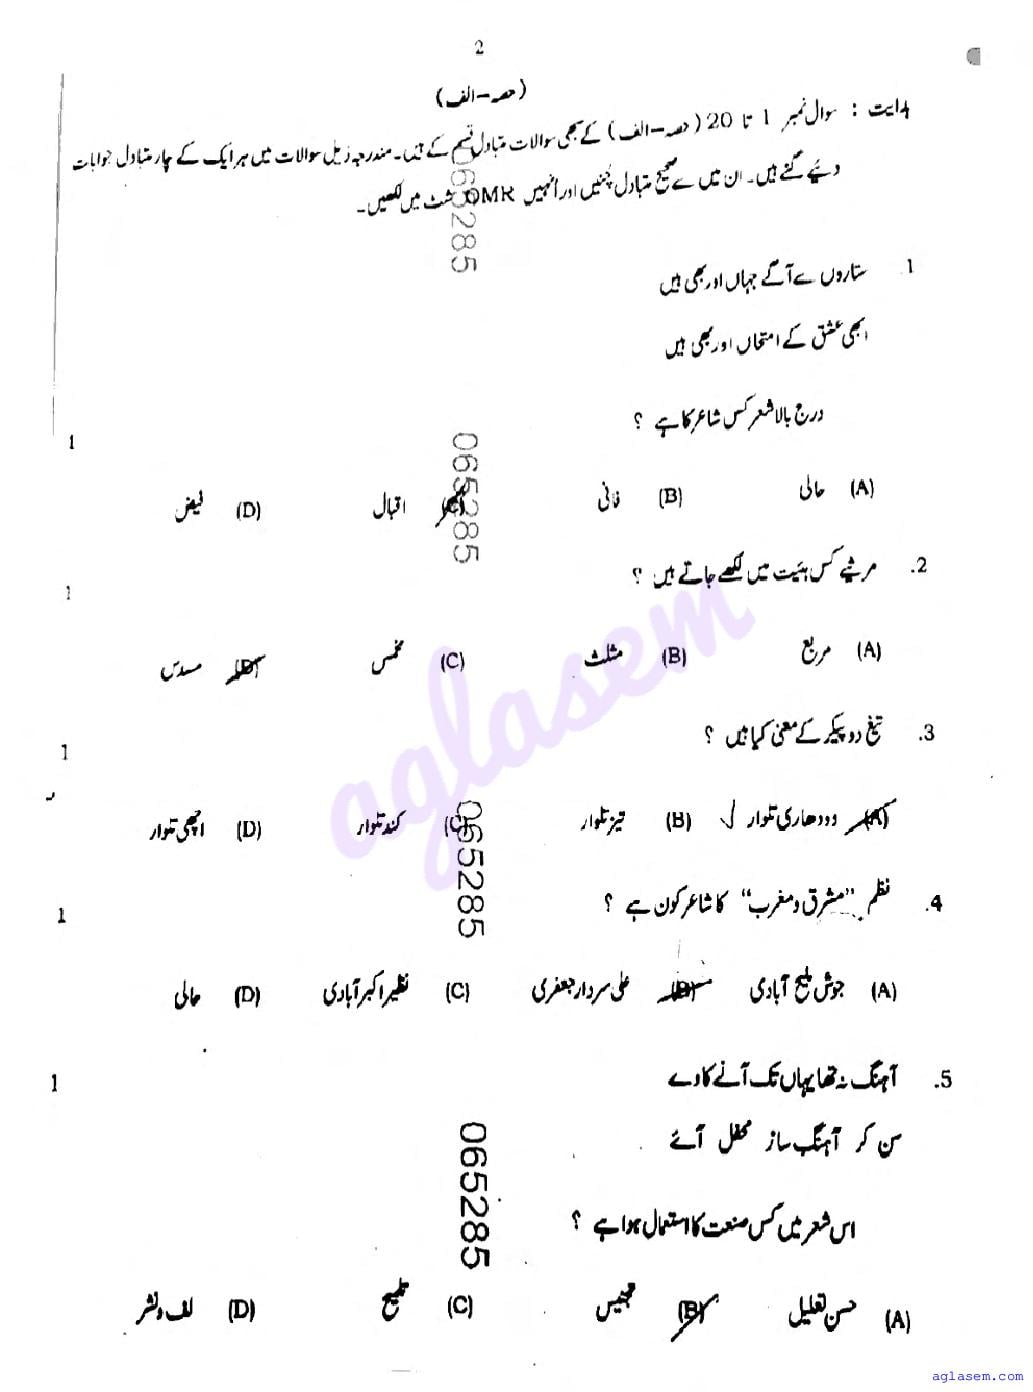 2
(حصہ-الف)
ہدایت : سوال نمبر 1 تا 20 (حصہ-الف) کے سبھی سوالات متبادل قسم کے ہیں۔ مندرجہ ذیل سوالات میں ہر ایک کے چار متبادل جوابات
دیئے گئے ہیں۔ ان میں سے صحیح متبادل چُنیں اور اُنہیں OMR شٹ میں لکھیں۔
065285
1. ستاروں سے آگے جہاں اور بھی ہیں
ابھی عشق کے امتحاں اور بھی ہیں
درج بالا شعر کس شاعر کا ہے ؟ 1
065285
(A) حالی (B) فانی (C) اقبال (D) فیض
2. مرثیے کس ہیئت میں لکھے جاتے ہیں ؟ 1
(A) مربع (B) مثلث (C) مخمس (D) مسدس
aglasem
3. تیغ دو پیکر کے معنی کیا ہیں ؟ 1
(A) دودھاری تلوار (B) تیز تلوار (C) کند تلوار (D) اچھی تلوار
065285
4. نظم "مشرق و مغرب" کا شاعر کون ہے ؟ 1
(A) جوش ملیح آبادی (B) علی سردار جعفری (C) نظیر اکبر آبادی (D) حالی
5. آہنگ نہ تھا یہاں تک آنے کا ولے 1
سن کر آہنگ ساز محفل آئے
065285
اس شعر میں کس صنعت کا استعمال ہوا ہے ؟
(A) حسن تعلیل (B) تجنیس (C) تلمیح (D) لف و نشر
aglasem.com